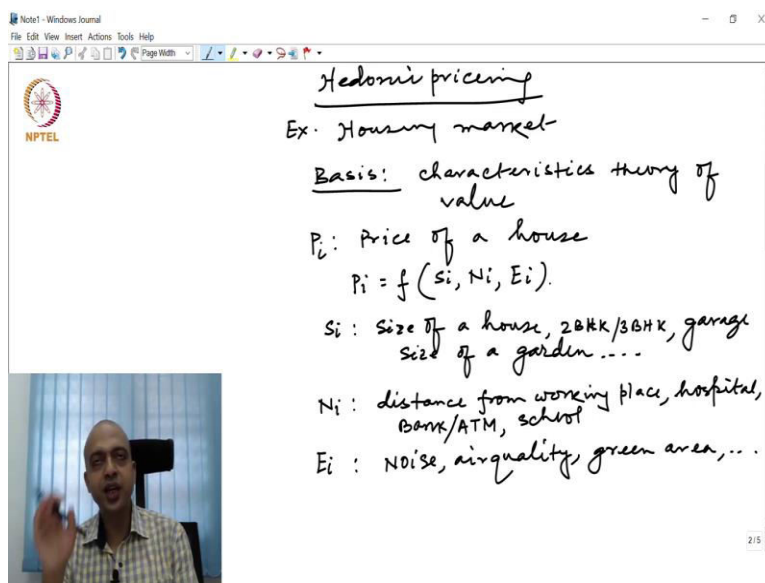 Note1 - Windows Journal
File Edit View Insert Actions Tools Help
Page Width
NPTEL
Hedonic pricering
Ex. Housing market
Basis: characteristics theory of
value
Pi: Price of a house
Pi = f (Si, Ni, Ei).
Si: Size of a house, 2BHK/3BHK, garage
size of a garden....
Ni: distance from working place, hospital,
Bank/ATM, school
Ei: Noise, air quality, green area,...
2/5